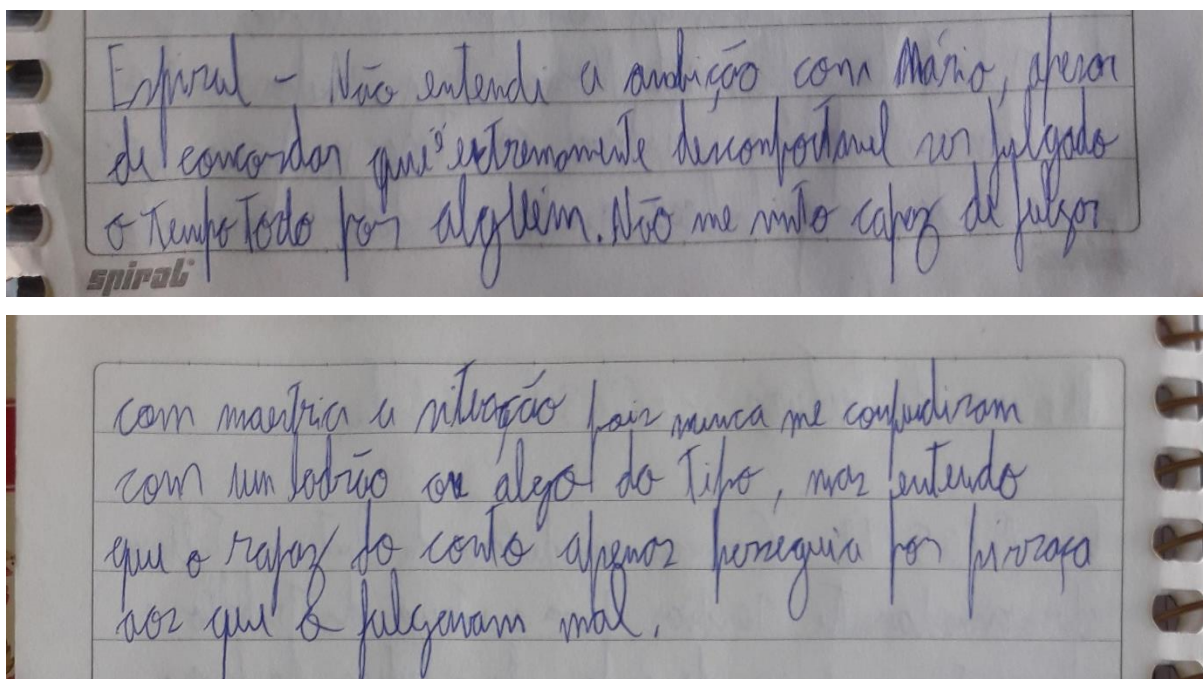 Espiral - Não entendi a ambição com Mário, apesar
de concordar que é extremamente desconfortável ser julgado
o tempo todo por alguém. Não me sinto capaz de julgar
spiral
com maestria a situação pois nunca me confundiram
com um ladrão ou algo do tipo, mas entendo
que o rapaz do conto apenas perseguia por pirraça
aos que o julgavam mal.